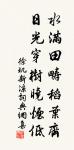 水滿田疇稻葉齊
日光穿樹曉煙低
徐璣新涼詞典網書